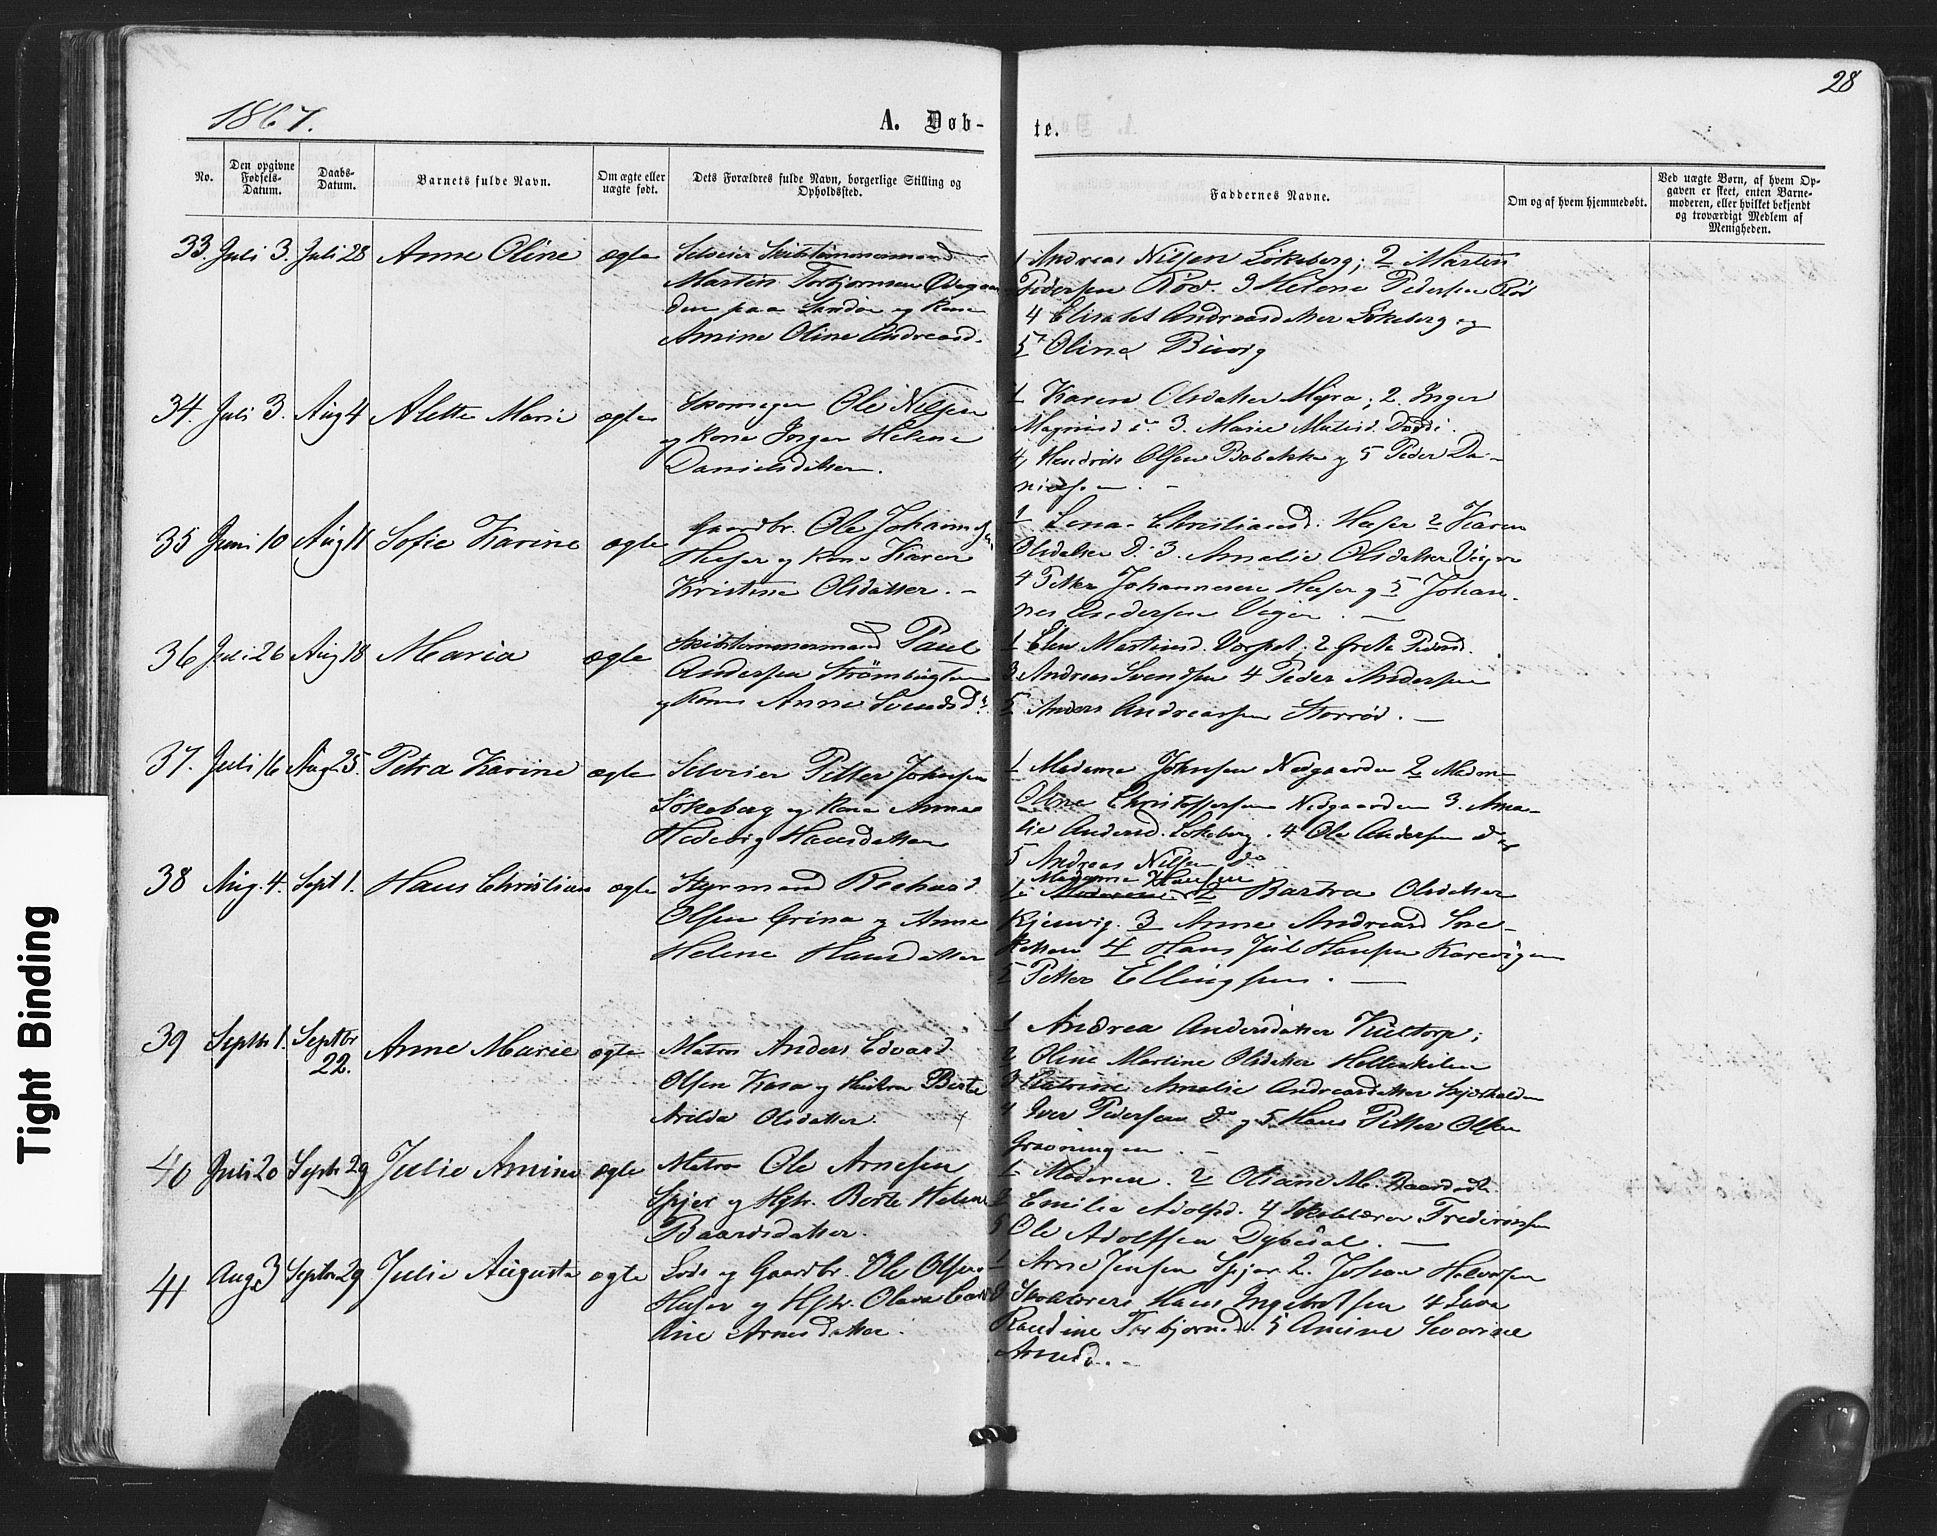 28
1867.
A. Døb-
te.
No.
Den opgivne
Fødsels-
Datum.
Daabs-
Datum.
Barnets fulde Navn.
Om ægte eller
uægte født.
Dets Forældres fulde Navn, borgerlige Stilling og
Opholdssted.
Faddernes Navne.
Om og af hvem hjemmedøbt.
Ved uægte Børn, af hvem Op-
gaven er skeet, enten Barne-
moderen, eller hvilket bekjendt
og troværdigt Medlem af
Menigheden.
33. Juli 3. Juli 28 Anne Oline ægte
Selveier Skibstømmermand
Martin Torbjørnsen
den paa Sandø og Kone
Amine Oline Andreasd.
1 Andreas Nilsen Løkeberg; 2 Martin
Pedersen Rød. 3 Helene Pedersen Rød
4 Elisabet Andreasdatter Løkeberg og
5 Oline
34. Juli 3. Aug 4 Alette Marie ægte
Ole Nilsen
og Kone Inger Helene
Danielsdatter.
1 Karen Olsdatter Myra; 2. Inger
3. Marie
4 Hendrik Olsen og 5 Peder Da-
nielsen. -
35 Juni 10 Aug 11 Sofie Karine ægte
Gaardbr. Ole Johannesen
og Kone Karen
Kristine Olsdatter. -
1 Lena Christiansd. 2 Karen
Olsdatter Do. 3. Amalie Olsdatter
4 Petter Johannesen og 5 Johan-
nes Andersen
36 Juli 26 Aug 18 Maria ægte
Skibstømmermand Paul
Andersen Strømbugten
og Kone Anne Svendsd.
1 Elen Martinsd. 2 Grete Pedersd.
3 Andreas Svendsen 4 Peder Andersen
5 Anders Andreassen Storrød. -
37. Juli 16 Aug 25. Petra Karine ægte
Selveier Petter Johnsen
Løkeberg og Kone Anne
Hedevig Hansdatter
1 Madame Johnsen Nedgaarden 2 Madm
Oline Christoffersen Nedgaarden 3. Ama-
lie Andersd. Løkeberg. 4 Ole Andersen do
5 Andreas Nilsen do
38 Aug. 4. Sept 1. Hans Christian ægte
Styrmand Richard
Olsen Grina og Anne
Helene Hansdatter
Madame Hansen
1 2 Bardra Olsdatter
3 Anne Andreasd
4 Hans Jul Hansen
5 Petter Ellingsen. -
39 Septbr 1. Septbr
22. Anne Marie ægte
Matros Anders Edvard
Olsen Kasa og Hustru Berte
Arilda Olsdatter.
1 Andrea Andersdatter
2 Oline Martine Olsdatter
3 Katrine Amalie Andreasdatter
4 Iver Pedersen do og 5 Hans Petter Olsen
Grønningen. -
40 Juli 20 Septb 29 Julie Amine ægte
Matros Ole Arnesen
Spjer og Hstr. Berte Helene
Baardsdatter.
1 Moderen. 2 Oliane M. Baardsdtr
3 Emilie Adolfsd. 4 Skolelærer Frederiksen
5 Ole Adolfsen Dybedal. -
41 Aug 3 Septbr 29 Julie Augusta ægte
Lods og Gaardbr. Ole Olsen
og Hstr. Olava
Arnesdatter.
1 Arne Jensen Spjer 2. Johan Halvorsen
3 Skolelærer Hans Ingebretsen 4 Lava
Randine Torbjørnsd. 5 Amine Severine
Arnesd. -
Tight Binding